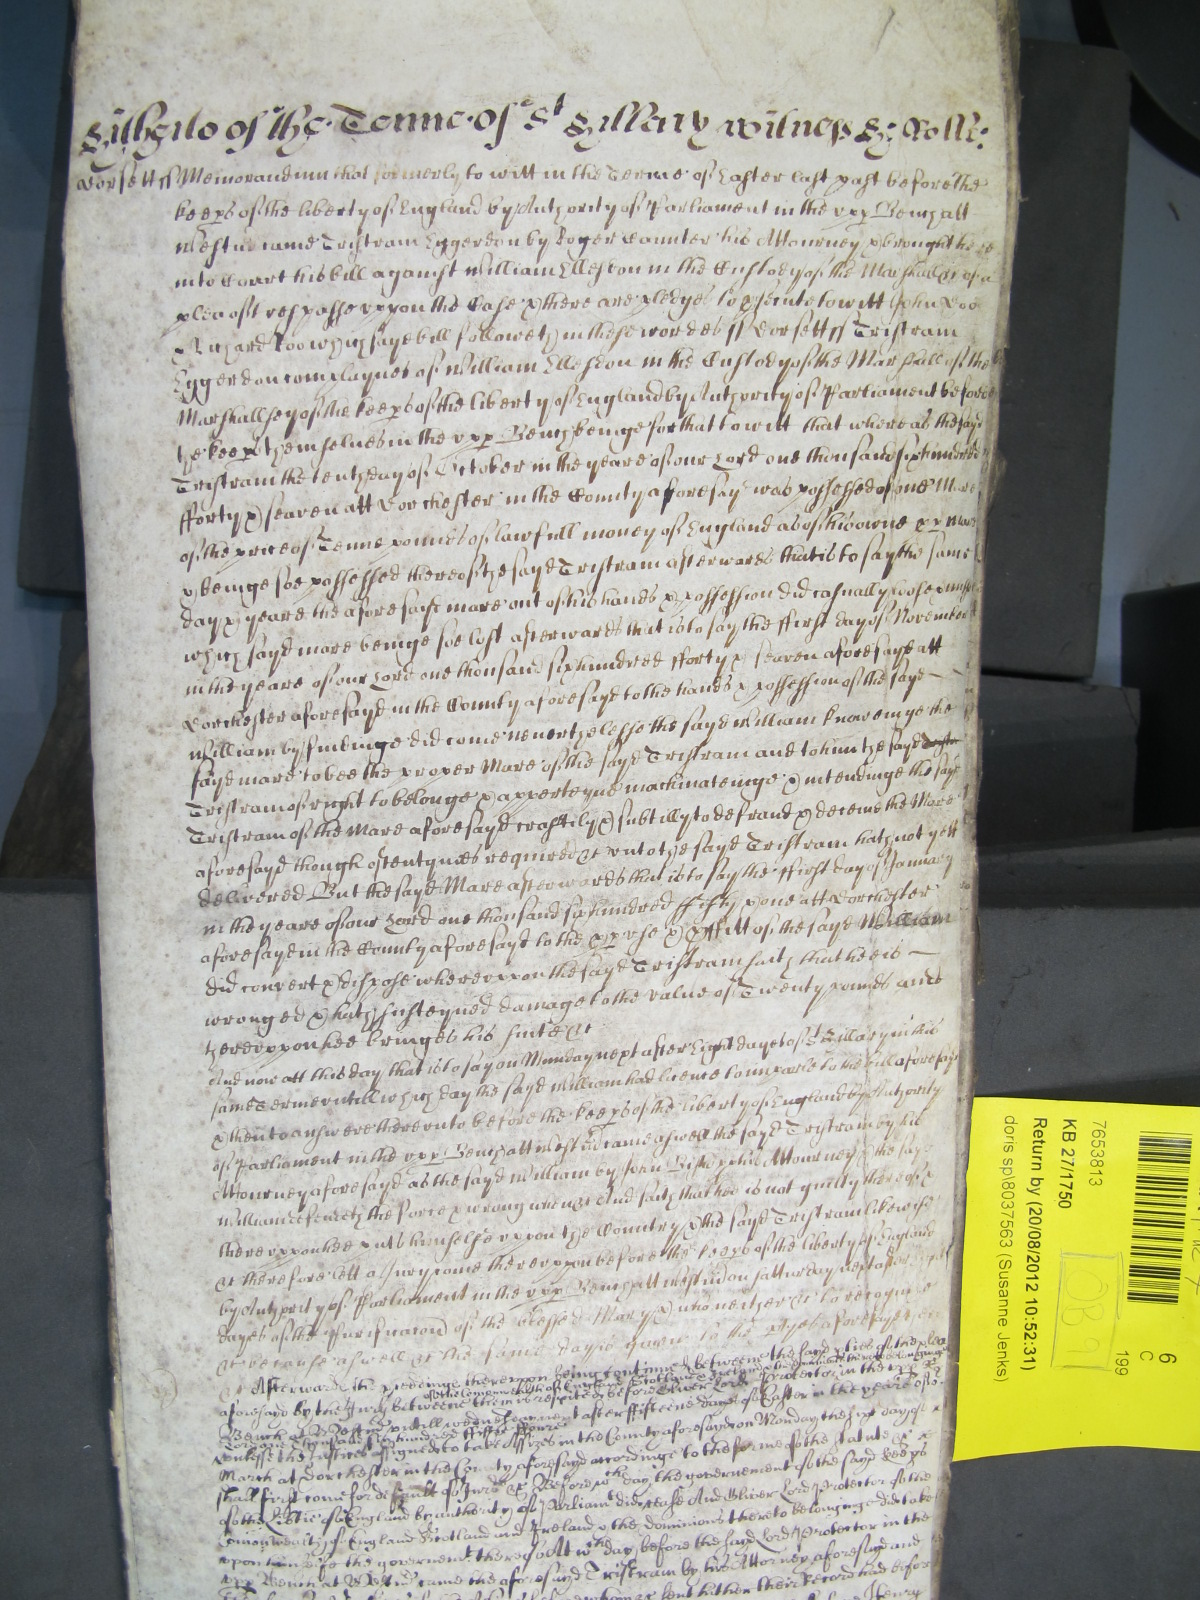 Hitherto of the Terme of St Hillary witnes H: Rolle:
Dorsett ss Memorandum that formerly to witt in the Terme of Easter last past before the
keeps of the liberty of England by Authority of Parliament in the upp Bench att
Westm came Tristram Eggerdon by Roger Caunter his Attourney & brought here
into Court his bill against William Ellesdon in the Custody of the Marshall &c of a
plea of trespasse uppon the Case & there are pledges to psecute to witt John Doo
& Richard Roo which sayd bill followeth in these wordes ss Dorsett ss Tristram
Eggerdon complaynes of William Ellesdon in the Custody of the Marshall of the
Marshallsey of the keeps of the liberty of England by Authority of Parliament before
the keeps themselves in the upp Bench beinge for that to witt that whereas the sayd
Tristram the tenth day of October in the yeare of our Lord one thousand six hundred
fforty & seaven att Dorchester in the County aforesayd was possessed of one Mare
of the price of Tenne pounds of lawfull money of England as of his owne pp Mare
& beinge soe possessed thereof the sayd Tristram afterwards that is to say the same
day & yeare the aforesayd mare out of his hands & possession did casually loose
which sayd mare beinge soe lost afterwards that is to say the ffirst day of November
in the yeare of our Lord one thousand six hundred fforty & seaven aforesayd att
Dorchester aforesayd in the County aforesayd to the hands & possession of the sayd
William by findinge did come neverthelesse the sayd William knoweinge the
sayd mare to bee the proper Mare of the sayd Tristram and to him the sayd
Tristram of right to belonge & apperteyne machinateinge & intendinge the sayd
Tristram of the Mare aforesayd craftily & subtilly to defraud & deceive the Mare
aforesayd though oftentymes required &c unto the sayd Tristram hath not yett
delivered But the sayd Mare afterwards that is to say the ffirst day of January
in the yeare of our Lord one thousand six hundred ffifty & one att Dorchester
aforesayd in the County aforesayd to the pp use & pffitt of the sayd William
did convert & dispose whereuppon the sayd Tristram saith that hee is
wronged & hath susteyned damage to the value of Twenty pounds and
thereuppon hee bringes his suite &c
And now att this day that is to say on Munday next after Eight dayes of St Hillary in this
same Terme untill which day the sayd William had licence to imparle to the bill aforesayd
& then to answere thereunto before the keeps of the liberty of England by Authority
of Parliament in the upp Bench att Westm came aswell the sayd Tristram by his
Attourney aforesayd as the sayd William by his Attourney & the sayd
William defendeth the force & wrong when &c And saith that hee is not guilty thereof &
thereuppon hee puts himselfe uppon the Country & the sayd Tristram likewise
&c therefore lett a Jury come thereuppon before the keeps of the liberty of England
by Authority of Parliament in the upp Bench att Westm on Satturday next after
dayes of the Purificacon of the blessed Mary & who neither &c to recognise
&c because aswell &c the same day is given to the ptyes aforesayd there
&c Afterwards the processe thereupon being continued betweene the sayd pties of the plea
aforesayd by the Jury betweene them is respited before Oliver Lord Protector
of the Commonwealth of England Scotland and Ireland & the dominions thereto belonginge in the upp
Bench at Westm untill wednesday next after ffifteene dayes of Easter in the yeare of
unlesse the Justices assigned to take Assizes in the County aforesayd on Monday the six day of
March at Dorchester in the County aforesayd accordinge to the forme of the statute &c
shall first come for default of Jurors &c Before wch day the governement of the sayd keeps
of the Libtie of England by authority of Parliamt did cease And Oliver Lord Protector of the
Comonwealth of England Scotland and Ireland & the dominions thereto belonginge did take
upon him the governmt thereof At wch day before the sayd Lord Protector in the
upp Bench at Westm came the aforesayd Tristram by his Attorney aforesayd and
sent hither their Record had before
6
C
199
7653813
KB 27/1750
Return by (20/08/2012 10:52:31)
doris sp\8037563 (Susanne Jenks)